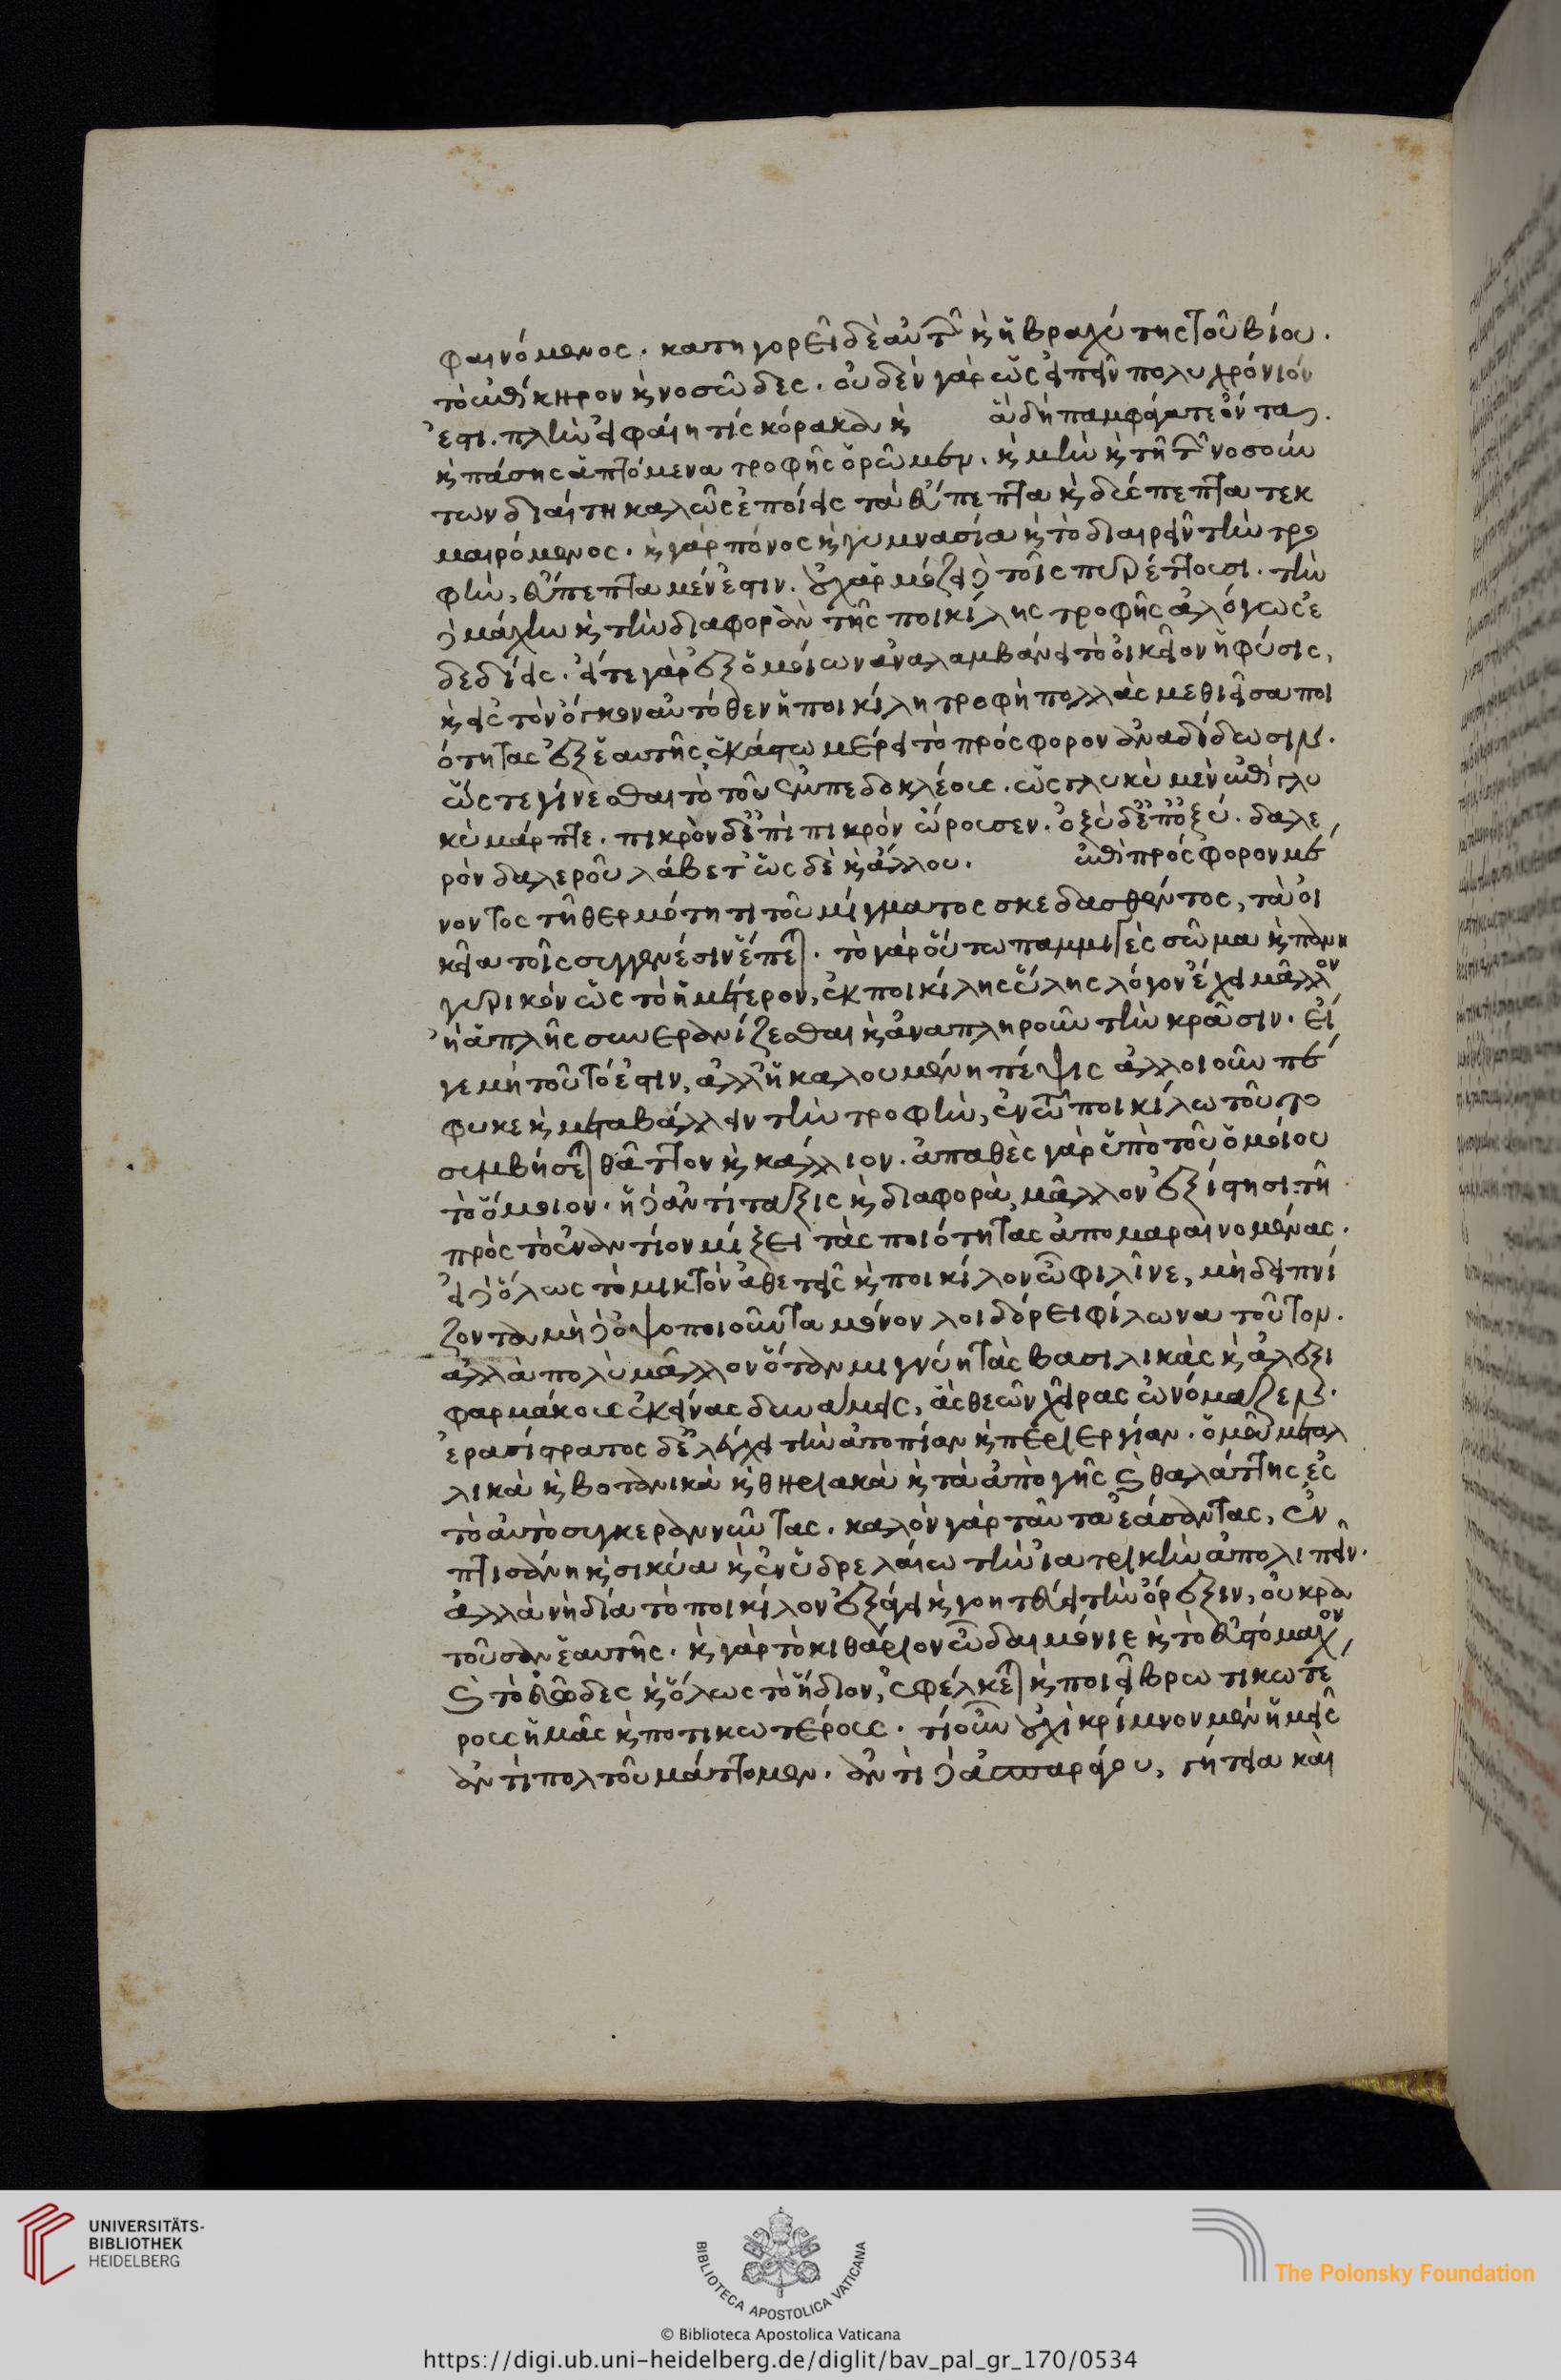 φαινόμενος. κατηγορεῖ δὲ αὐτῶν καὶ ἡ βραχύτης τοῦ βίου.
τὸ ἐπίκηρον καὶ νοσῶδες. οὐδὲν γὰρ ὡς εἰπεῖν πολυχρόνιόν
ἐστι. πλὴν εἰ φαίη τίς κόρακα καὶ ἃ δὴ παμφάγα τε ὄντα.
καὶ πάσης ἁπτόμενα τροφῆς ὁρῶμεν. καὶ μὴν καὶ τῇ τῶν νοσούν
των διαίτη καλῶς ἐποίεις τὰ εὔπεπτα καὶ δύσπεπτα τεκ
μαιρόμενος. καὶ γὰρ πόνος καὶ γυμνασία καὶ τὸ διαιρεῖν τὴν τρο
φὴν, εὔπεπτα μέν ἐστιν. οὐχ ἁρμόζει δὲ τοῖς πυρέττουσι. τὴν
δὲ μάχην καὶ τὴν διαφορὰν τῆς ποικίλης τροφῆς ἀλόγως ἐ
δεδίεις. εἴτε γὰρ ἐξ ὁμοίων ἀναλαμβάνει τὸ οἰκεῖον ἡ φύσις,
καὶ εἰς τὸν ὄγκον αὐτόθεν ἡ ποικίλη τροφὴ πολλὰς μεθιεῖσα ποι
ότητας ἐξ ἑαυτῆς ἑκάστω μέρει τὸ πρόσφορον ἀναδίδωσιν.
ὥστε γίνεσθαι τὸ τοῦ ἐμπεδοκλέους. ὡς γλυκὺ μὲν ἐπὶ γλυ
κὺ μάρπτε. πικρὸν δ' ἐπὶ πικρὸν ὤρουσεν. ὀξὺ δ' ἐπ' ὀξύ. δαλε
ρὸν δαλεροῦ λάβετ' ὣς δὲ καὶ ἄλλου. ἐπὶ πρόσφορον μέ
νοντος τῇ θερμότητι τοῦ μίγματος σκεδασθέντος, τὰ οἰ
κεῖα τοῖς συγγενέσιν ἕπεται. τὸ γὰρ οὕτω παμμιγὲς σῶμα καὶ πανη
γυρικὸν ὡς τὸ ἡμέτερον, ἐκ ποικίλης ὕλης λόγον ἔχει μᾶλλον
ἢ ἁπλῆς συνερανίζεσθαι καὶ ἀναπληροῦν τὴν κρᾶσιν. εἰ
γε μὴ τοῦτό ἐστιν, ἀλλ' ἡ καλουμένη πέψις ἀλλοιοῦν πέ
φυκε καὶ μεταβάλλειν τὴν τροφὴν, ἐν τῶ ποικίλω τοῦτο
συμβήσεται θᾶττον καὶ κάλλιον. ἀπαθὲς γὰρ ὑπὸ τοῦ ὁμοίου
τὸ ὅμοιον. ἡ δὲ ἀντίταξις καὶ διαφορὰ, μᾶλλον ἐξίστησι τῇ
πρὸς τὸ ἐναντίον μίξει τὰς ποιότητας ἀπομαραινομένας.
εἰ δὲ ὅλως τὸ μικτὸν ἀθετεῖς καὶ ποικίλον ὦ φιλῖνε, μὴ δειπνί
ζοντα μὴ δὲ ὀψοποιοῦντα μόνον λοιδόρει φίλωνα τοῦτον.
ἀλλὰ πολὺ μᾶλλον ὅταν μιγνύη τὰς βασιλικὰς καὶ ἀλεξι
φαρμάκους ἐκείνας δυνάμεις, ἃς θεῶν χεῖρας ὠνόμαζεν.
ἐρασίστρατος δ' ἐλέγχει τὴν ἀτοπίαν καὶ περιεργίαν. ὁμοῦ μεταλ
λικὰ καὶ βοτανικὰ καὶ θηριακὰ καὶ τὰ ἀπὸ γῆς καὶ θαλάττης εἰς
τὸ αὐτὸ συγκεραννοῦντας. καλὸν γὰρ ταῦτα ἐάσαντας, ἐν
πτισάνη καὶ σικύα καὶ ἐν ὑδρελαίω τὴν ἰατρικὴν ἀπολιπεῖν.
ἀλλὰ νὴ δία τὸ ποικίλον ἐξάγει καὶ γοητεύει τὴν ὄρεξιν, οὐ κρα
τοῦσαν ἑαυτῆς. καὶ γὰρ τὸ κιθάριον ὦ δαιμόνιε καὶ τὸ εὐστόμαχον,
καὶ τὸ εὐῶδες καὶ ὅλως τὸ ἥδιον, ἐφέλκεται καὶ ποιεῖ βρωτικωτέ
ρους ἡμᾶς καὶ ποτικωτέρους. τί οὖν οὐχὶ κρίμνον μὲν ἡμεῖς
ἀντὶ πολτοῦ μάττομεν. ἀντὶ δὲ ἀσπαράγου, γήτεια καὶ
UNIVERSITÄTS-
BIBLIOTHEK
HEIDELBERG
BIBLIOTECA APOSTOLICA VATICANA
The Polonsky Foundation
© Biblioteca Apostolica Vaticana
https://digi.ub.uni-heidelberg.de/diglit/bav_pal_gr_170/0534